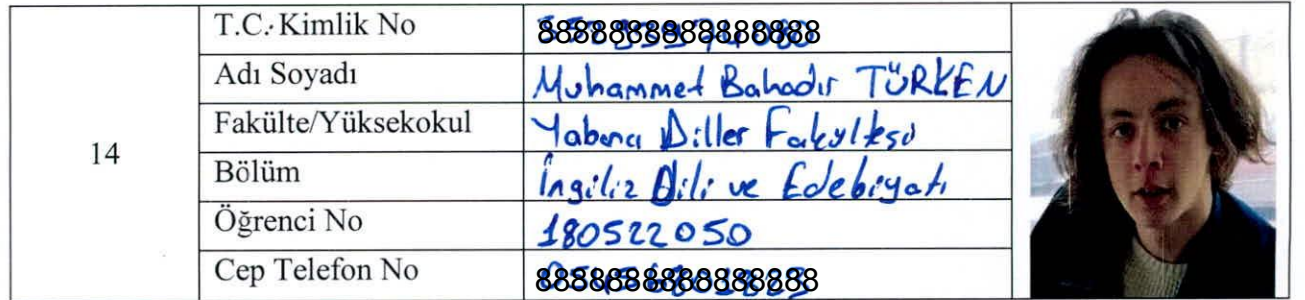 14
T.C. Kimlik No
Adı Soyadı Muhammet Bahadır TÜRKEN
Fakülte/Yüksekokul Yabancı Diller Fakültesi
Bölüm İngiliz Dili ve Edebiyatı
Öğrenci No 180522050
Cep Telefon No